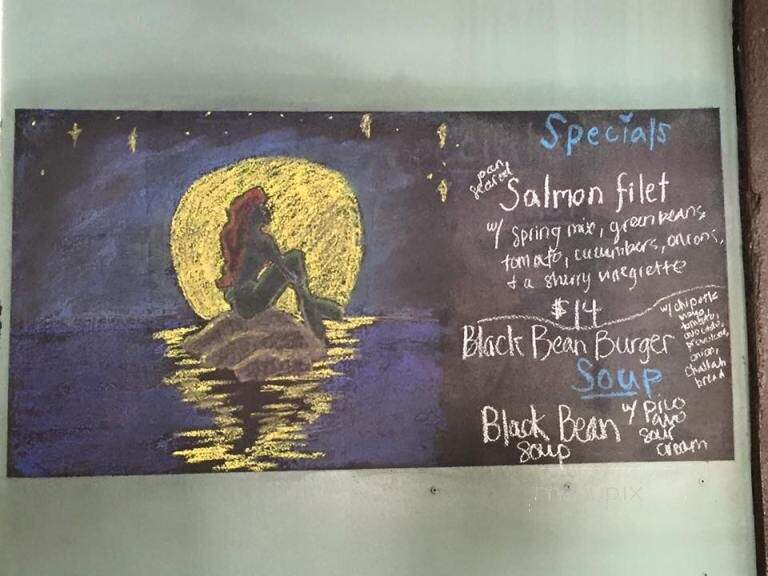 Specials
pan
seared
Salmon filet
w/ spring mix, green beans,
tomato, cucumbers, onions,
+ a sherry vinegrette
$14
Black Bean Burger
w/ chipotle
mayo
tomato,
avocado,
provolone,
onion,
challah
bread
Soup
Black Bean
Soup
w/ pico
avo
sour
cream